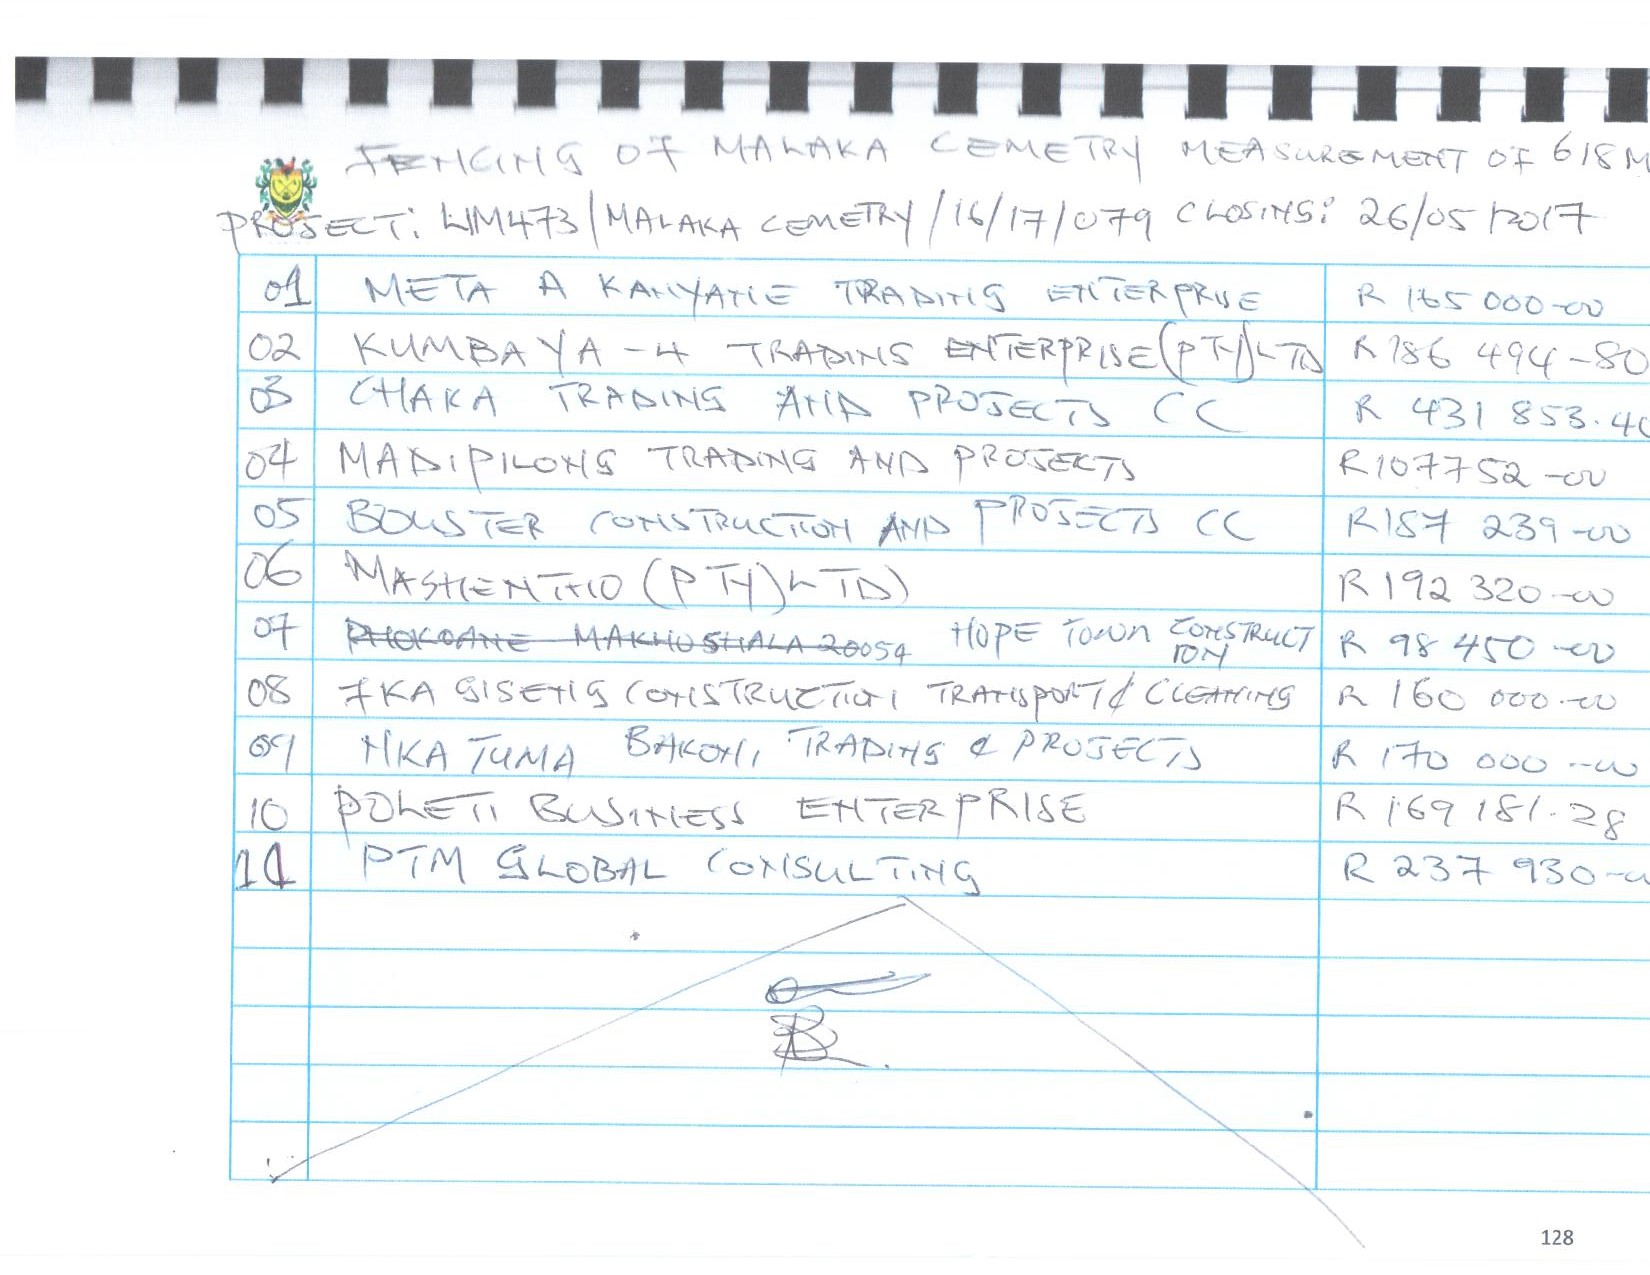 FENCING OF MALAKA CEMETRY MEASUREMENT OF 618M
PROJECT: LIM473/MALAKA CEMETRY/16/17/079 CLOSING: 26/05/2017
01 META A KANYANE TRADING ENTERPRISE R 165 000-00
02 KUMBAYA-H TRADING ENTERPRISE(PTY)LTD R 186 494-80
03 CHAKA TRADING AND PROJECTS CC R 431 853.40
04 MADIPILONG TRADING AND PROJECTS R107752-00
05 BOUSTER CONSTRUCTION AND PROJECTS CC R187 239-00
06 MASHENTHO (PTY)LTD) R192 320-00
07 PHOKOANE MAKHUSHALA 20054 HOPE TOWN CONSTRUCTION R 98 450-00
08 FKA GISENG CONSTRUCTION TRANSPORT & CLEANING R 160 000-00
09 NKA TUMA BAKONI TRADING & PROJECTS R 170 000-00
10 POLETI BUSINESS ENTERPRISE R 169 181.28
11 PTM GLOBAL CONSULTING R 237 930-0
128